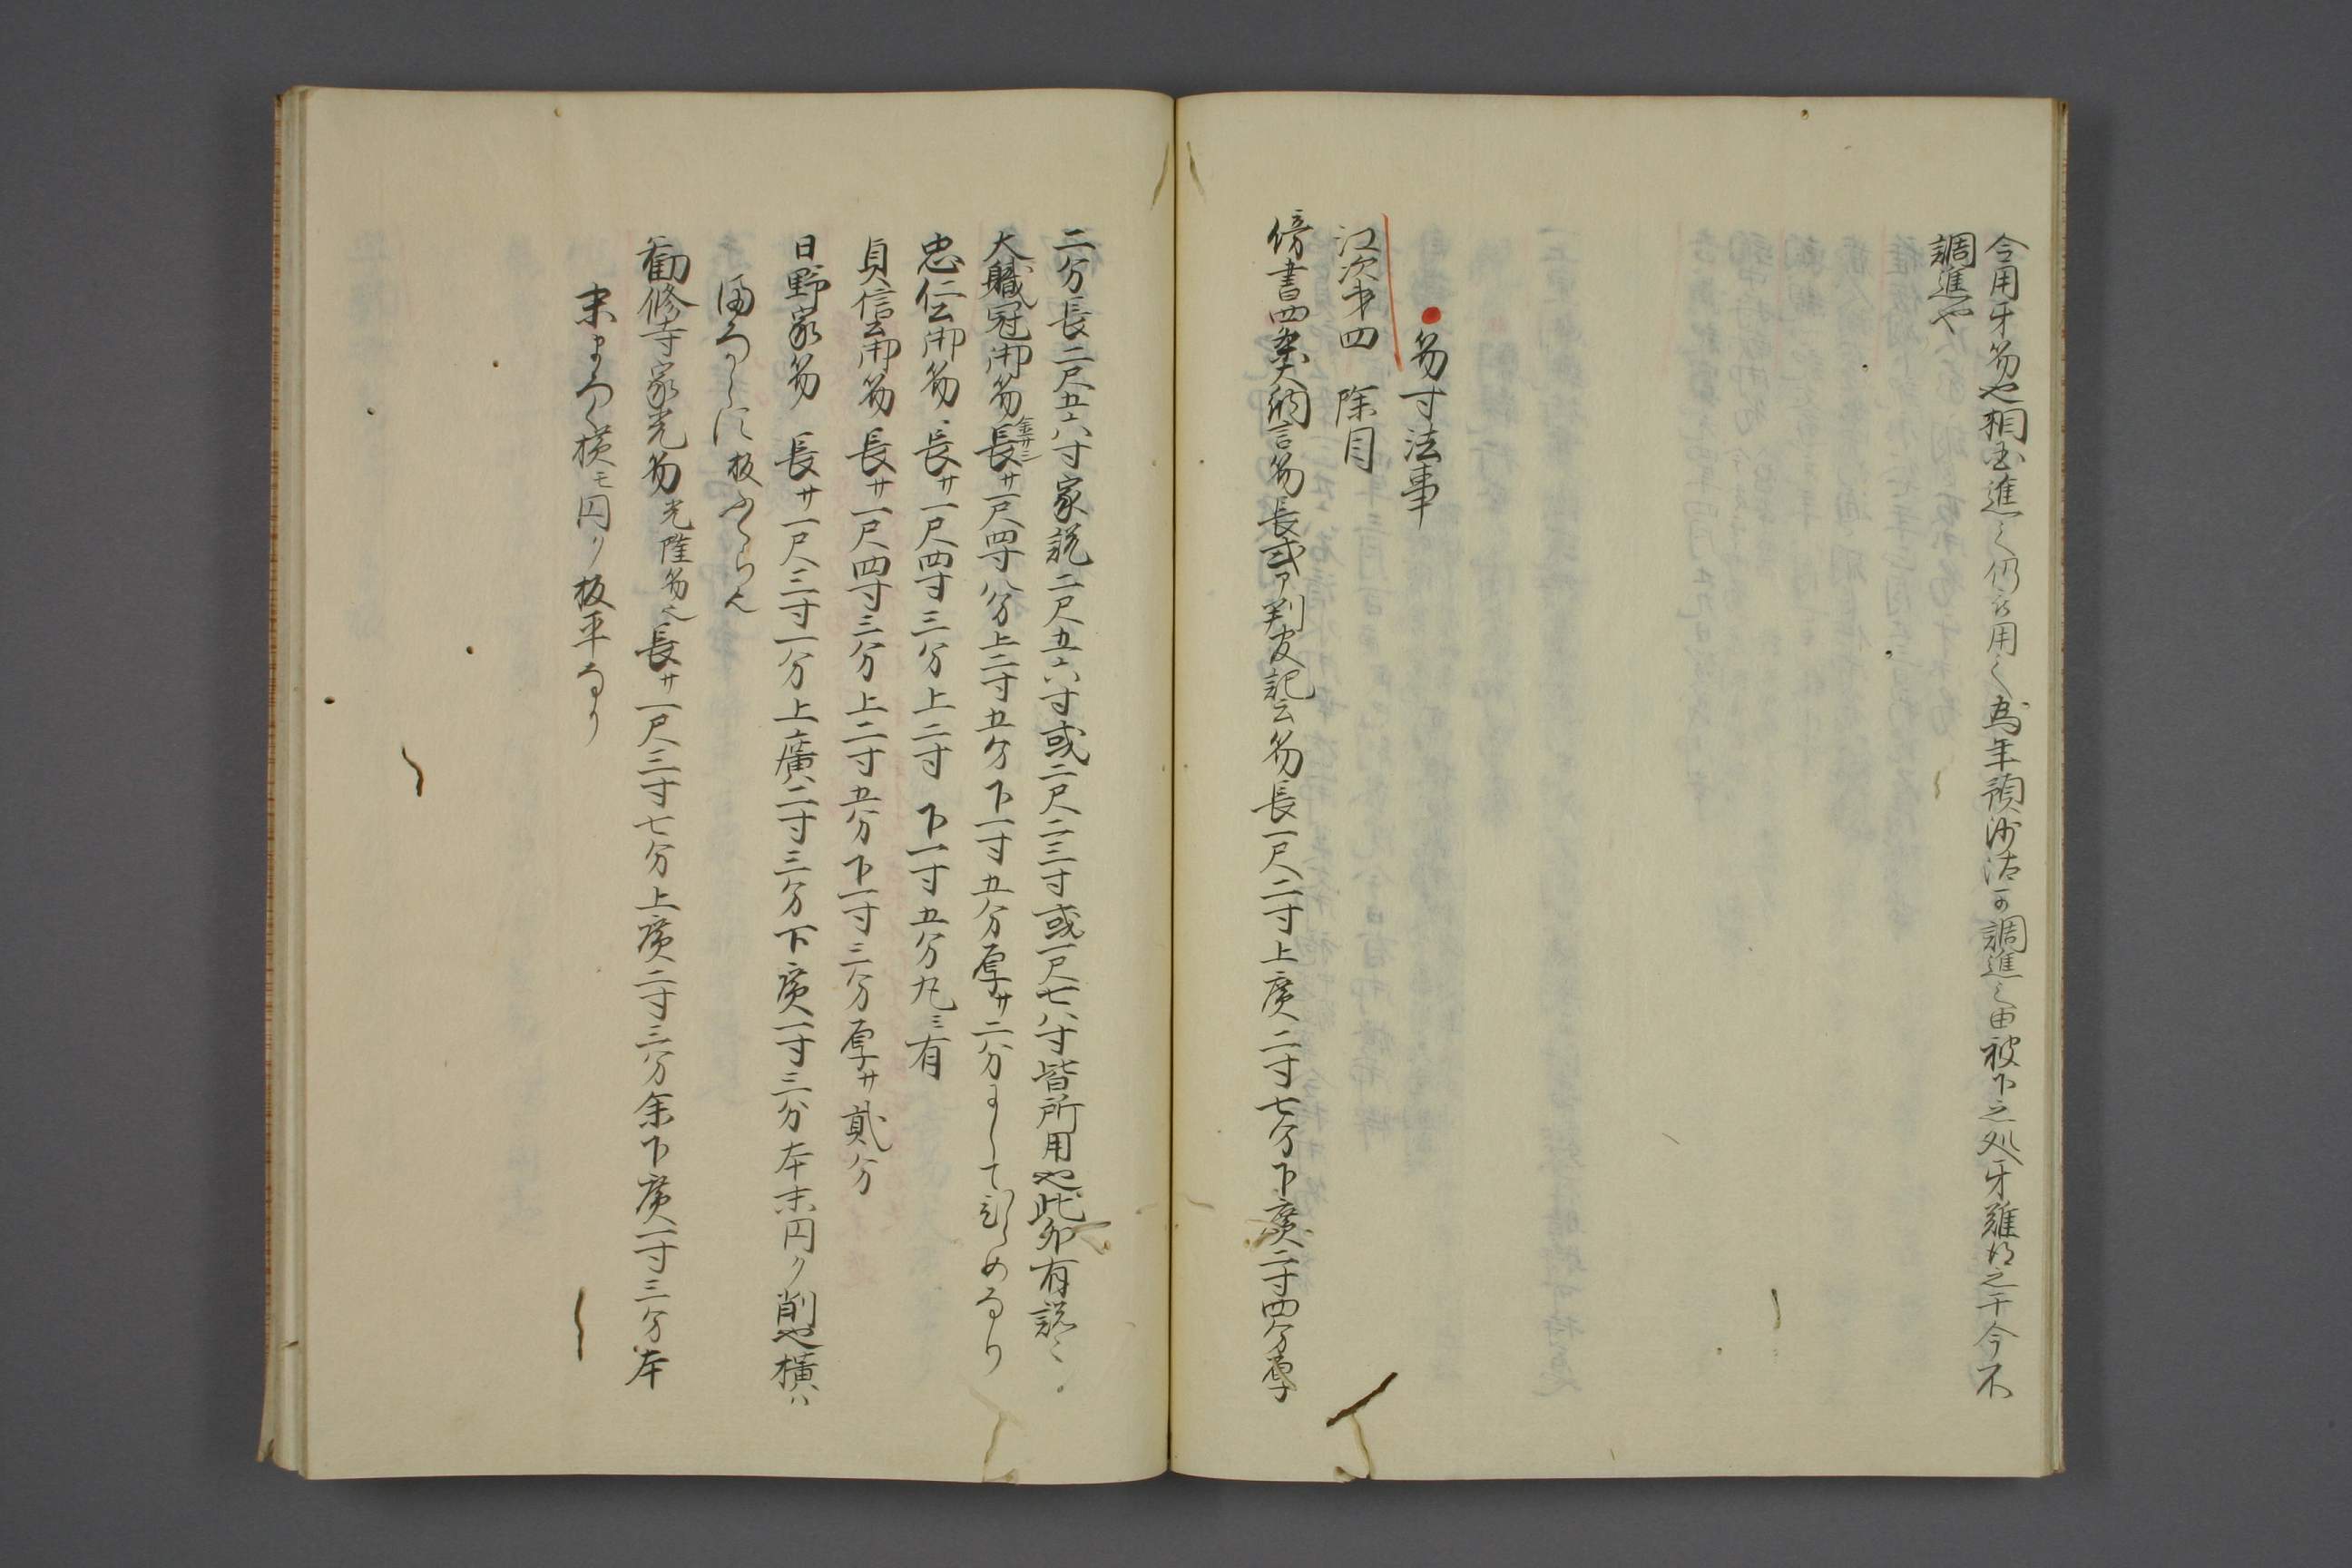 令用牙笏也相国進之仍被用之為年預沙法可調進之由被下之処牙難得之于今不
調進也
笏寸法事
江次第四 除目
傍書四条大納言笏長或 記云笏長一尺二寸上広二寸七分下広二寸四分厚
二分長二尺五六寸家説二尺五六寸或二尺二三寸或一尺七八寸皆所用也此外有説々
大職冠御笏長サ一尺四寸八分上二寸五分下一寸五分厚サ二分 ひらめなり
忠仁公御笏長サ一尺四寸三分上二寸下一寸五分 有
貞信公御笏長サ一尺四寸三分上二寸五分下一寸三分厚サ貳分
日野家笏 長サ一尺三寸一分上広二寸三分下広一寸三分本末円ク削也横ハ
板
勧修寺家光笏光隆笏也長サ一尺三寸七分上広二寸三分余下広一寸三分本
末まろく横モ円ク板平なり